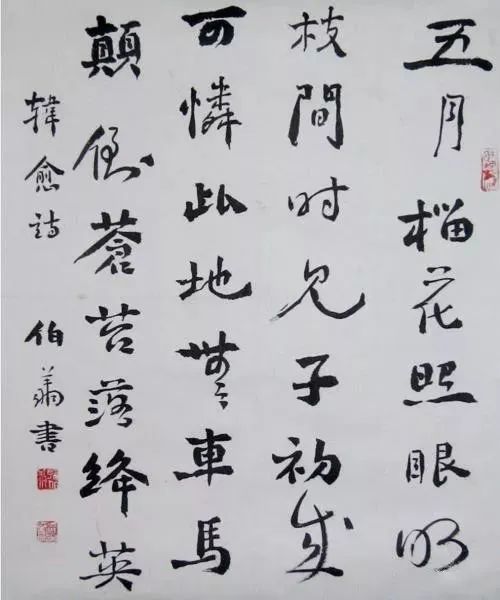 五月榴花照眼明
枝間时见子初成
可憐此地無車馬
顛倒蒼苔落絳英
韓愈詩 伯蕭書